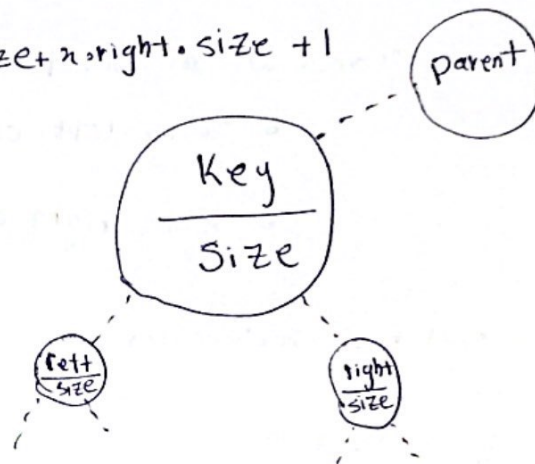 ze + x.right.size + 1
parent
Key
Size
left
size
right
size